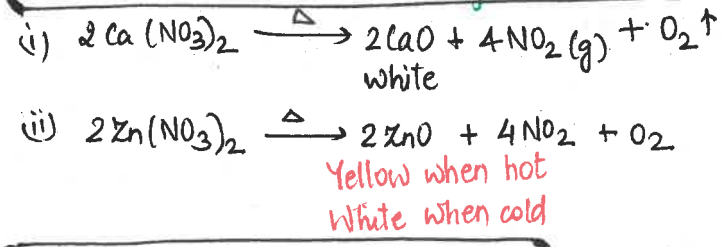 (i) 2 Ca (NO₃)₂ —Δ→ 2 CaO + 4 NO₂ (g) + O₂ ↑
white
(ii) 2 Zn(NO₃)₂ —Δ→ 2 ZnO + 4 NO₂ + O₂
Yellow when hot
White when cold